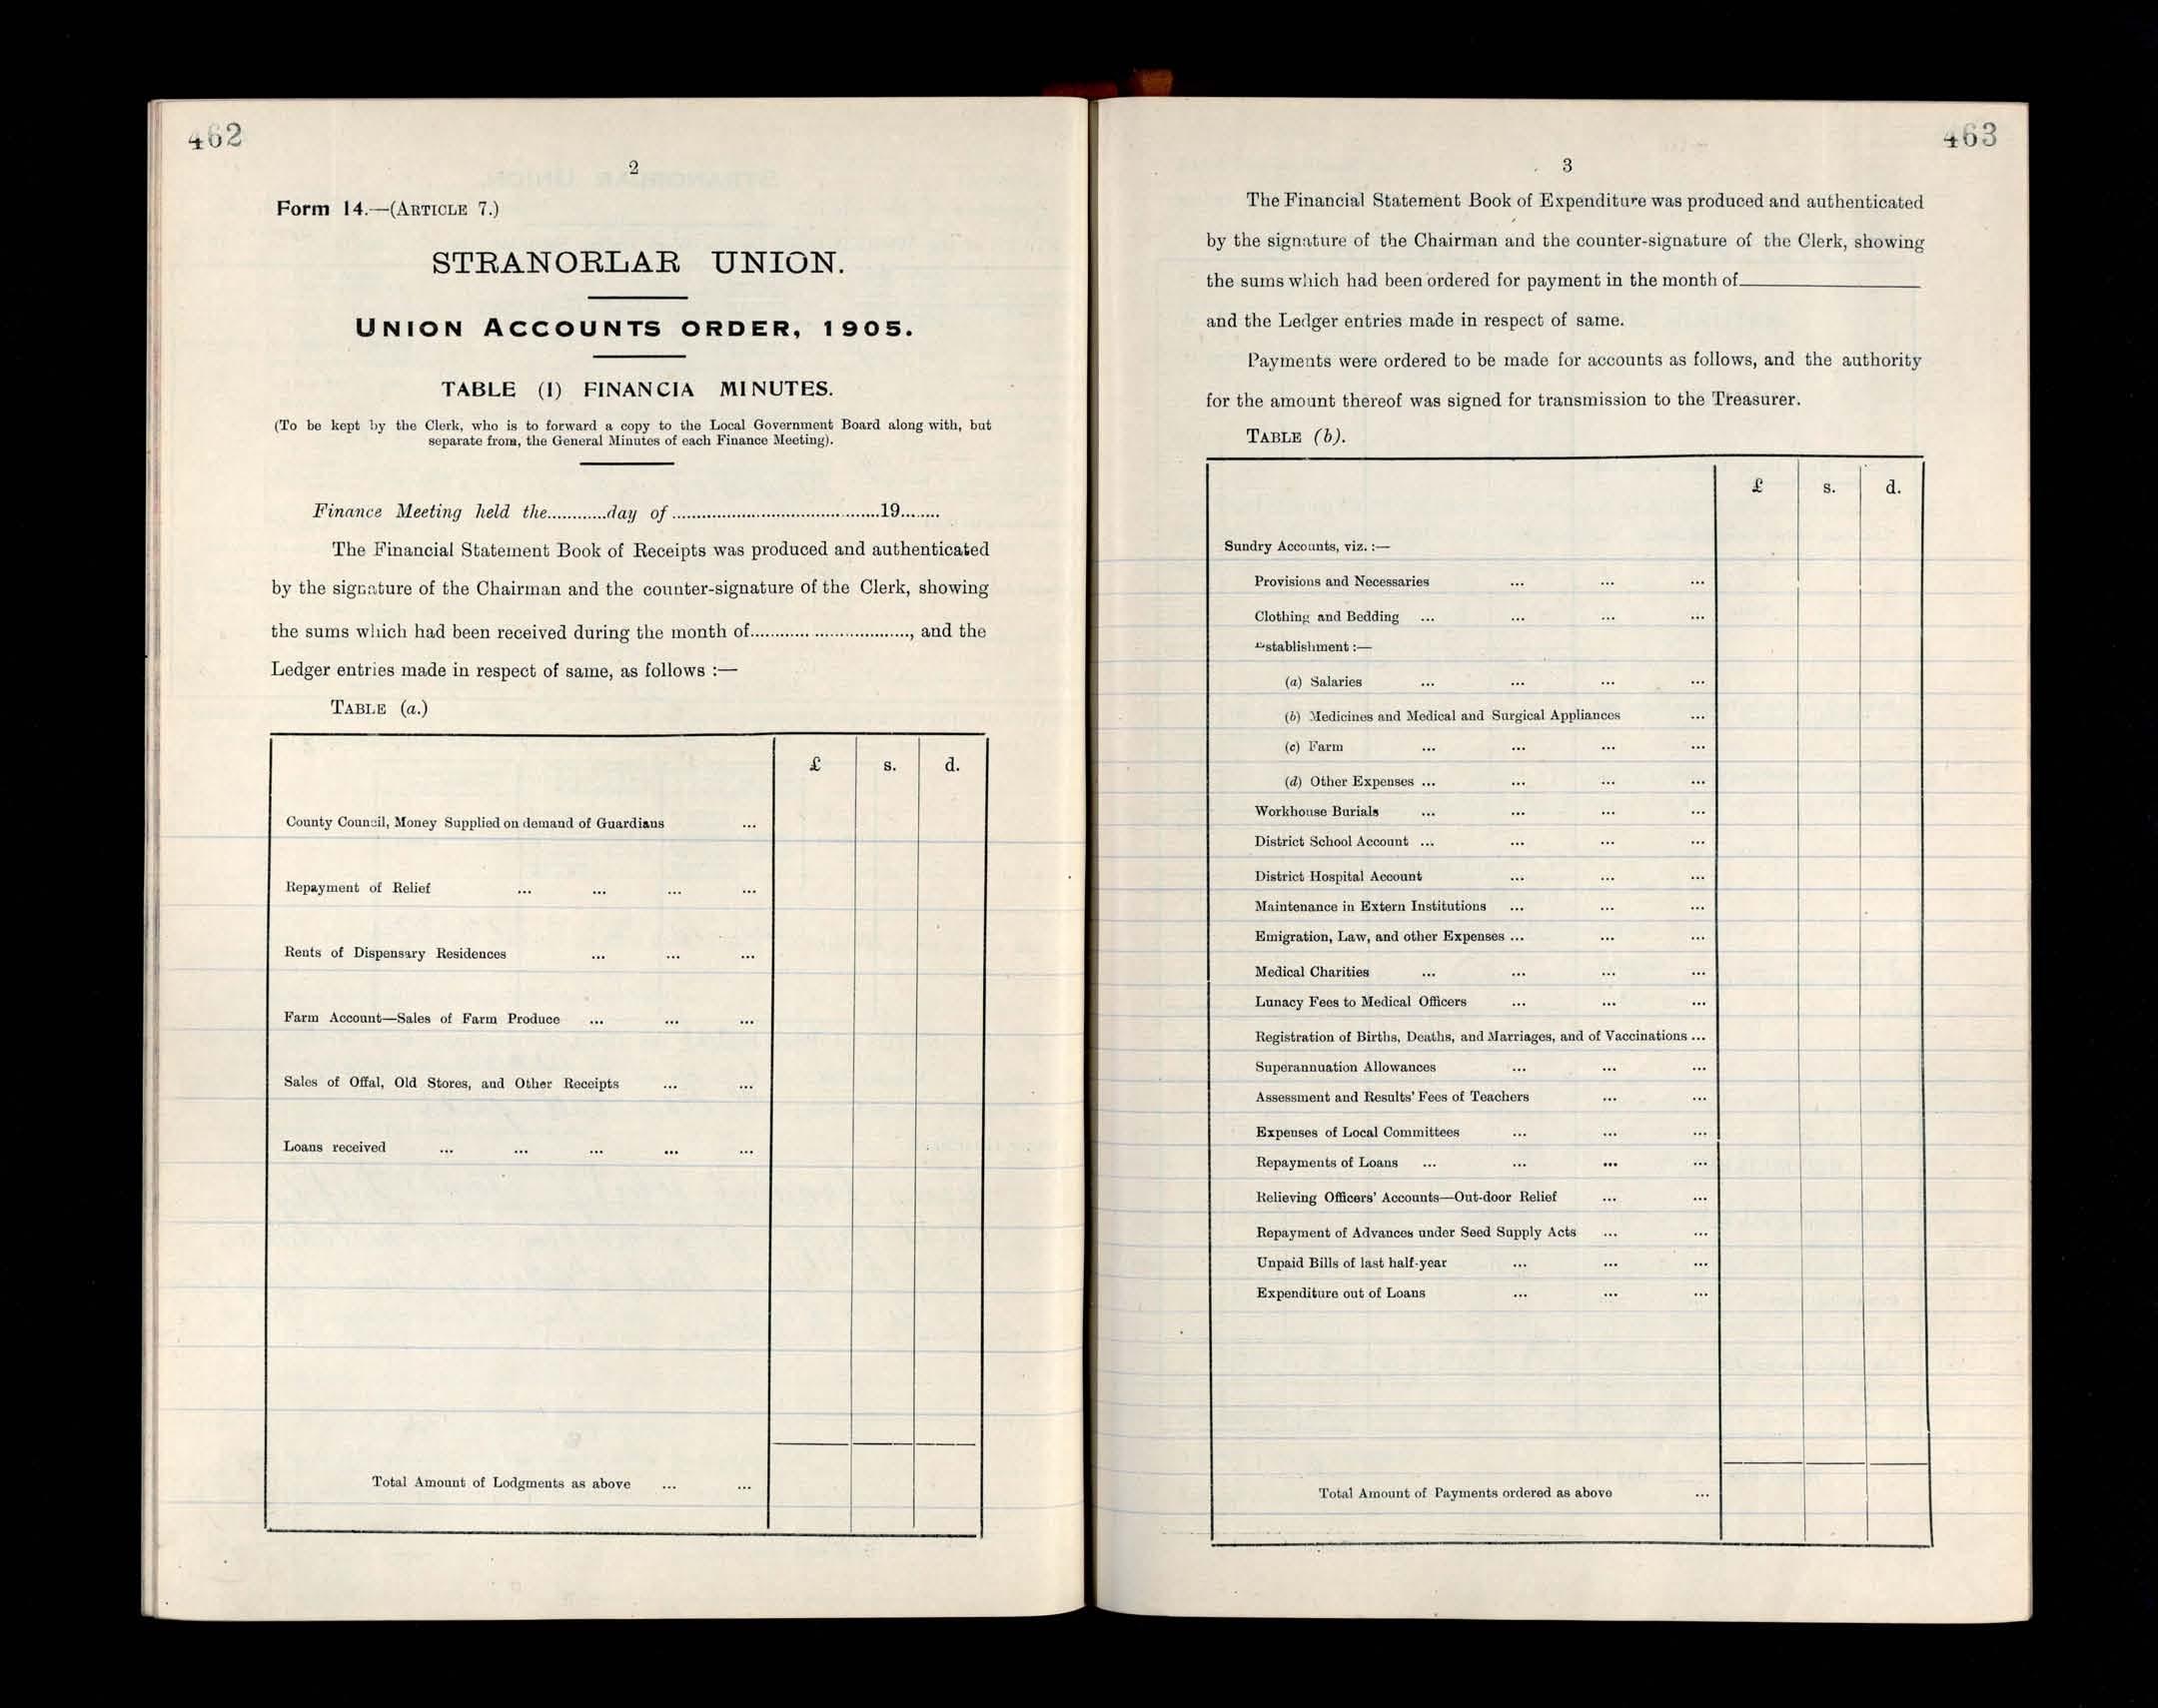 462
2
Form 14.—(ARTICLE 7.)
STRANORLAR UNION.
UNION ACCOUNTS ORDER, 1905.
TABLE (1) FINANCIA MINUTES.
(To be kept by the Clerk, who is to forward a copy to the Local Government Board along with, but
separate from, the General Minutes of each Finance Meeting).
Finance Meeting held the............day of ..........................................19........
The Financial Statement Book of Receipts was produced and authenticated
by the signature of the Chairman and the counter-signature of the Clerk, showing
the sums which had been received during the month of................................, and the
Ledger entries made in respect of same, as follows :—
TABLE (a.)
£ s. d.
County Council, Money Supplied on demand of Guardians ...
Repayment of Relief ... ... ... ...
Rents of Dispensary Residences ... ... ...
Farm Account—Sales of Farm Produce ... ... ...
Sales of Offal, Old Stores, and Other Receipts ... ...
Loans received ... ... ... ... ...
Total Amount of Lodgments as above ... ...
463
3
The Financial Statement Book of Expenditure was produced and authenticated
by the signature of the Chairman and the counter-signature of the Clerk, showing
the sums which had been ordered for payment in the month of
and the Ledger entries made in respect of same.
Payments were ordered to be made for accounts as follows, and the authority
for the amount thereof was signed for transmission to the Treasurer.
TABLE (b).
£ s. d.
Sundry Accounts, viz. :—
Provisions and Necessaries ... ... ...
Clothing and Bedding ... ... ... ...
Establishment :—
(a) Salaries ... ... ... ...
(b) Medicines and Medical and Surgical Appliances ...
(c) Farm ... ... ... ...
(d) Other Expenses ... ... ... ...
Workhouse Burials ... ... ... ...
District School Account ... ... ... ...
District Hospital Account ... ... ...
Maintenance in Extern Institutions ... ... ...
Emigration, Law, and other Expenses ... ... ...
Medical Charities ... ... ... ...
Lunacy Fees to Medical Officers ... ... ...
Registration of Births, Deaths, and Marriages, and of Vaccinations ...
Superannuation Allowances ... ... ...
Assessment and Results' Fees of Teachers ... ...
Expenses of Local Committees ... ... ...
Repayments of Loans ... ... ... ...
Relieving Officers' Accounts—Out-door Relief ... ...
Repayment of Advances under Seed Supply Acts ... ...
Unpaid Bills of last half-year ... ... ...
Expenditure out of Loans ... ... ...
Total Amount of Payments ordered as above ...